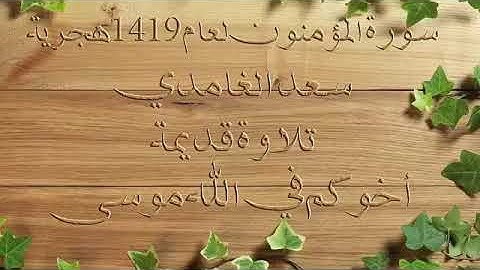 سورة المؤمنون لعام 1419 هجرية
سعد الغامدي
تلاوة قديمة
أخوكم في الله موسى